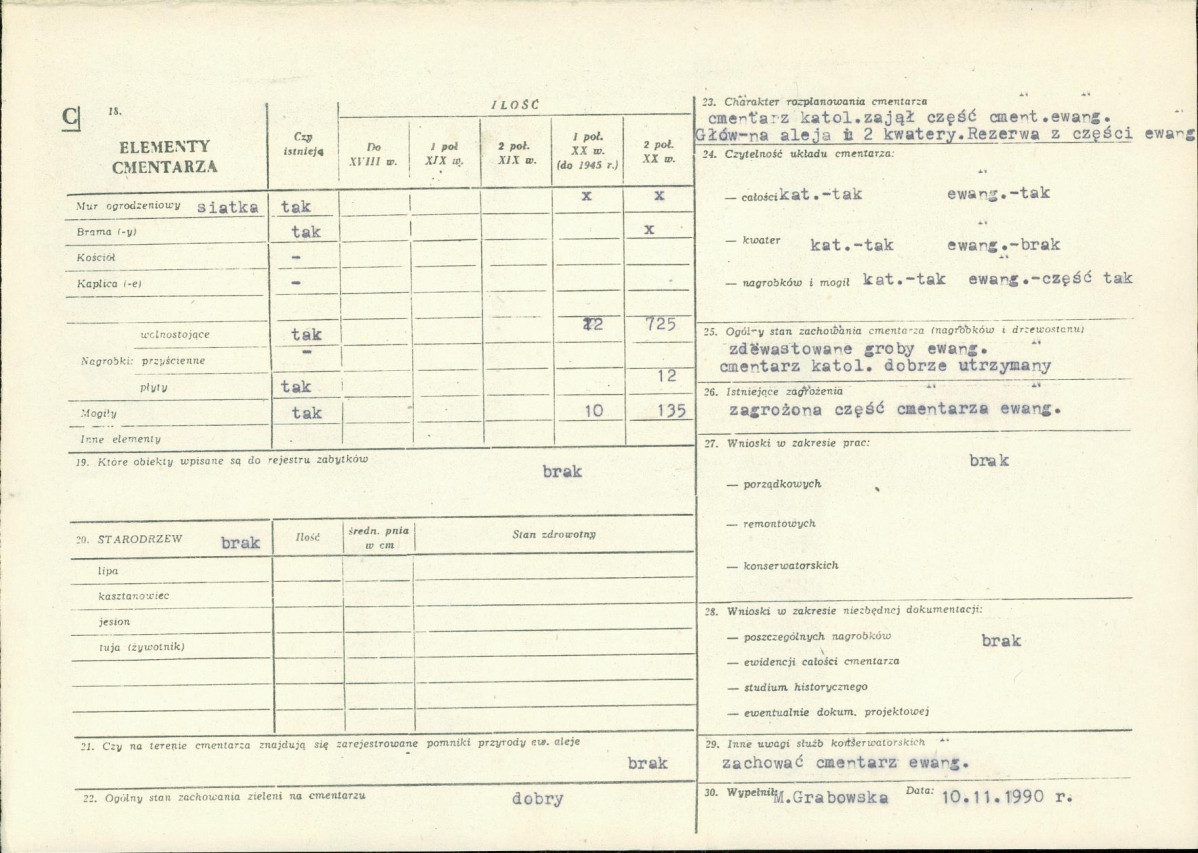 C
18.
ELEMENTY
CMENTARZA
Czy
istnieją
ILOŚĆ
Do
XVIII w.
1 poł
XIX w.
2 poł.
XIX w.
1 poł.
XX w.
(do 1945 r.)
2 poł.
XX w.
Mur ogrodzeniowy siatka tak x x
Brama (-y) tak x
Kościół -
Kaplica (-e) -
wolnostojące tak 12 725
Nagrobki: przyścienne -
płyty tak 12
Mogiły tak 10 135
Inne elementy
19. Które obiekty wpisane są do rejestru zabytków
brak
20. STARODRZEW brak
Ilość
średn. pnia
w cm
Stan zdrowotny
lipa
kasztanowiec
jesion
tuja (żywotnik)
21. Czy na terenie cmentarza znajdują się zarejestrowane pomniki przyrody ew. aleje
brak
22. Ogólny stan zachowania zieleni na cmentarzu dobry
23. Charakter rozplanowania cmentarza
cmentarz katol.zajął część cment.ewang.
Głów-na aleja i 2 kwatery.Rezerwa z części ewang
24. Czytelność układu cmentarza:
— całości kat.-tak ewang.-tak
— kwater kat.-tak ewang.-brak
— nagrobków i mogił kat.-tak ewang.-część tak
25. Ogólny stan zachowania cmentarza (nagrobków i drzewostanu)
zdewastowane groby ewang.
cmentarz katol. dobrze utrzymany
26. Istniejące zagrożenia
zagrożona część cmentarza ewang.
27. Wnioski w zakresie prac:
brak
— porządkowych
— remontowych
— konserwatorskich
28. Wnioski w zakresie niezbędnej dokumentacji:
— poszczególnych nagrobków brak
— ewidencji całości cmentarza
— studium historycznego
— ewentualnie dokum. projektowej
29. Inne uwagi służb konserwatorskich
zachować cmentarz ewang.
30. Wypełnił M.Grabowska Data: 10.11.1990 r.